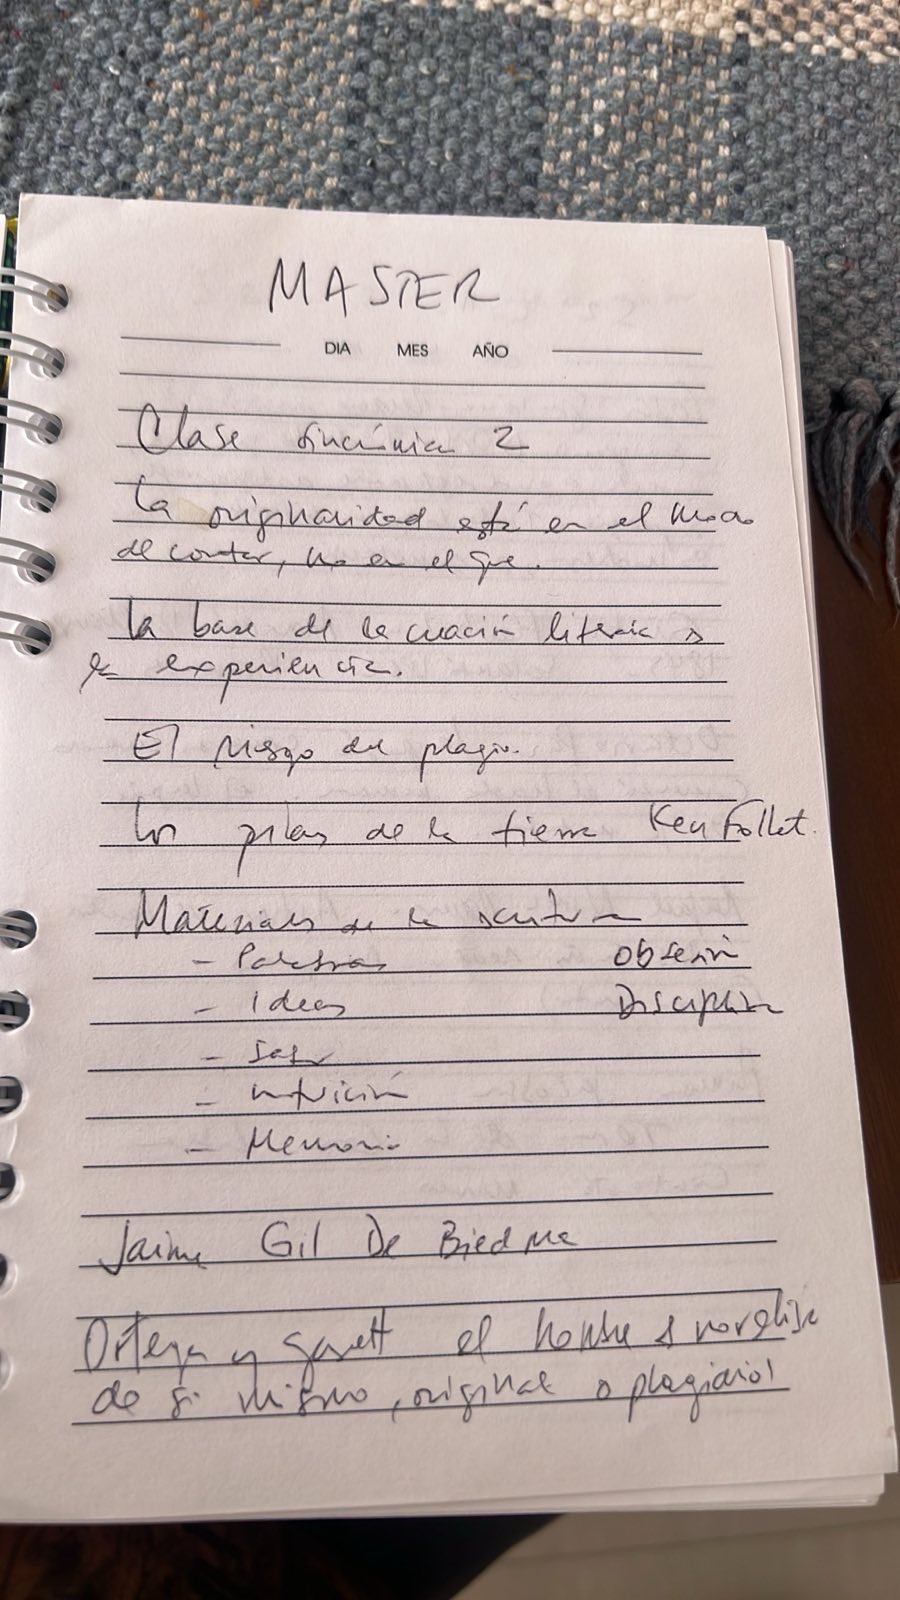 MASTER
DIA MES AÑO
Clase sincrónica 2
La originalidad está en el modo
de contar, no en el que.
La base de la creación literaria es
la experiencia.
El riesgo del plagio.
Los pilares de la tierra Ken Follet.
Materiales de la escritura
- Palabras Observ
- Ideas Disciplina
-
- intuición
- Memoria
Jaime Gil De Biedma
Ortega y Gasett el hombre es novelista
de si mismo, original o plagiario